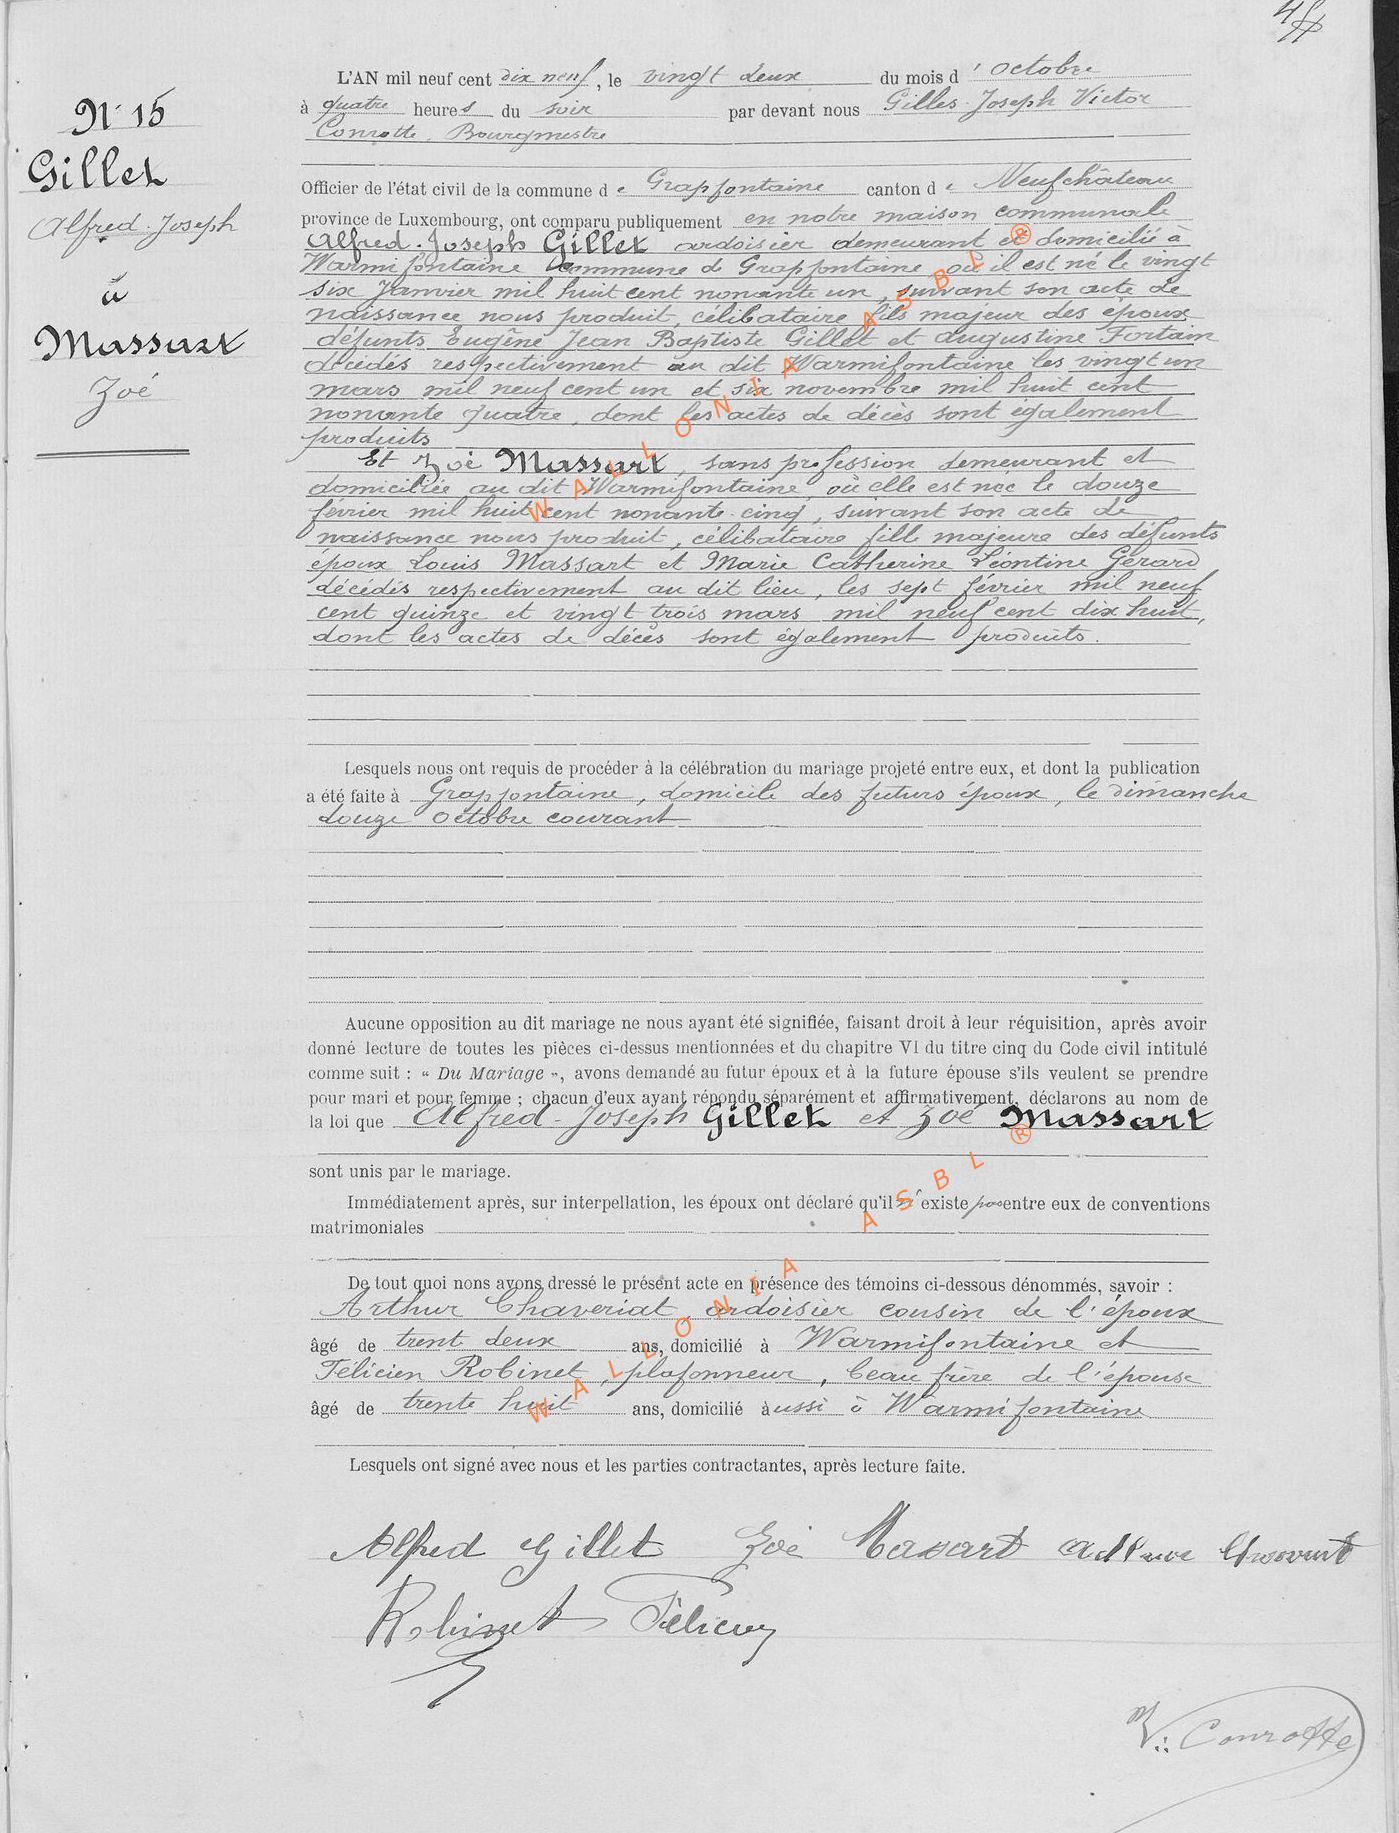 N° 15
Gillet
Alfred-Joseph
à
Massart
Zoé
L'AN mil neuf cent dix neuf, le vingt deux du mois d'octobre
à quatre heures du soir par devant nous Gilles-Joseph Victor
Conrotte, Bourgmestre
Officier de l'état civil de la commune de Grapfontaine canton de Neufchâteau
province de Luxembourg, ont comparu publiquement en notre maison communale
Alfred-Joseph Gillet ardoisier demeurant et domicilié à
Warmifontaine commune de Grapfontaine où il est né le vingt
six Janvier mil huit cent nonante un, suivant son acte de
naissance nous produit, célibataire fils majeur des époux
défunts Eugène Jean Baptiste Gillet et Augustine Fortain
décédés respectivement au dit Warmifontaine les vingt un
mars mil neuf cent un et six novembre mil huit cent
nonante quatre, dont les actes de décès sont également
produits
Et Zoé Massart, sans profession demeurant et
domiciliée au dit Warmifontaine, où elle est née le douze
février mil huit cent nonante-cinq, suivant son acte de
naissance nous produit, célibataire fille majeure des défunts
époux Louis Massart et Marie Catherine Léontine Gérard
décédés respectivement au dit lieu, les sept février mil neuf
cent quinze et vingt trois mars mil neuf cent dix huit,
dont les actes de décès sont également produits.
Lesquels nous ont requis de procéder à la célébration du mariage projeté entre eux, et dont la publication
a été faite à Grapfontaine, domicile des futurs époux, le dimanche
douze octobre courant
Aucune opposition au dit mariage ne nous ayant été signifiée, faisant droit à leur réquisition, après avoir
donné lecture de toutes les pièces ci-dessus mentionnées et du chapitre VI du titre cinq du Code civil intitulé
comme suit : « Du Mariage », avons demandé au futur époux et à la future épouse s'ils veulent se prendre
pour mari et pour femme ; chacun d'eux ayant répondu séparément et affirmativement, déclarons au nom de
la loi que Alfred-Joseph Gillet et Zoé Massart
sont unis par le mariage.
Immédiatement après, sur interpellation, les époux ont déclaré qu'il n'existe pas entre eux de conventions
matrimoniales
De tout quoi nons avons dressé le présent acte en présence des témoins ci-dessous dénommés, savoir :
Arthur Chaveriat, ardoisier cousin de l'époux
âgé de trent deux ans, domicilié à Warmifontaine et
Félicien Robinet, plafonneur, beau frère de l'épouse
âgé de trente huit ans, domicilié aussi à Warmifontaine
Lesquels ont signé avec nous et les parties contractantes, après lecture faite.
Alfred Gillet Zoé Massart
Robinet Félicien
V. Conrotte
WALLONIA ASBL ®
WALLONIA ASBL ®